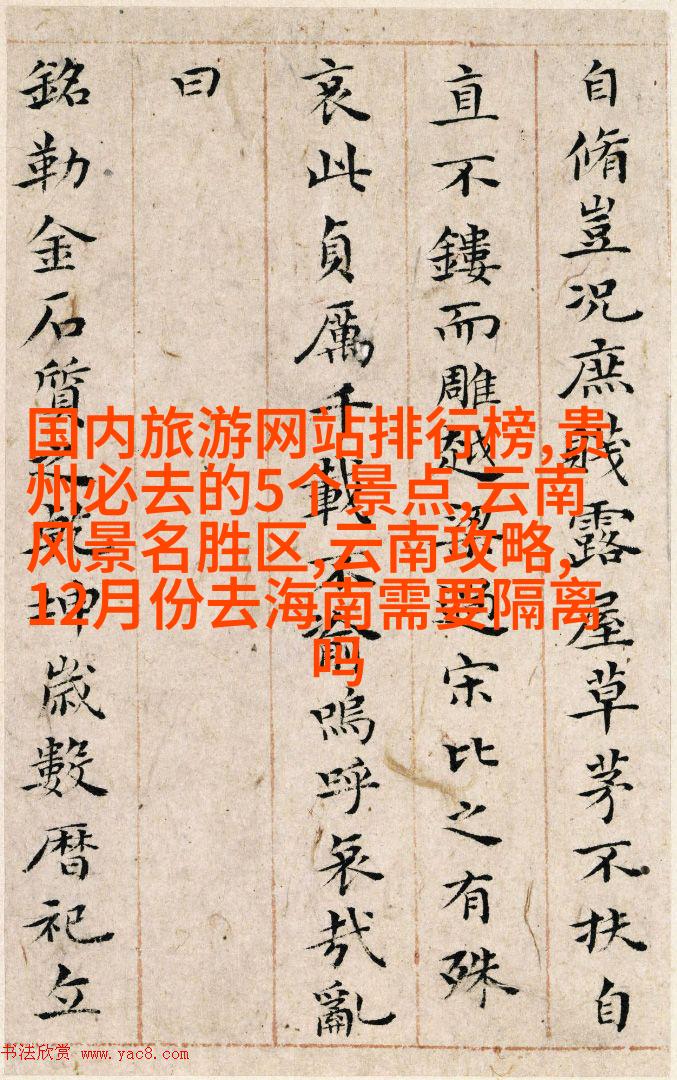 自脩豈況庶賤露屋草茅不扶自
直不鏤而雕越梁過宋比之有殊
哀此貞厲千載不渝嗚呼哀哉亂
曰
銘勒金石質之乾坤歲數曆祀立
国内旅游网站排行榜,贵
州必去的5个景点,云南
风景名胜区,云南攻略,
12月份去海南需要隔离
吗
书法欣赏 www.yac8.com